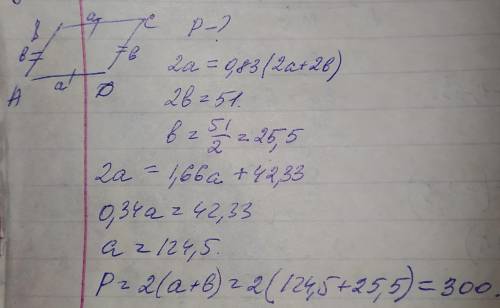 B a C P-?
в в
A a D
2a = 0,83(2a+2в)
2в = 51.
в = 51/2 = 25,5
2a = 1,66a + 42,33
0,34a = 42,33
a = 124,5.
P = 2(a+в) = 2(124,5+25,5) = 300.